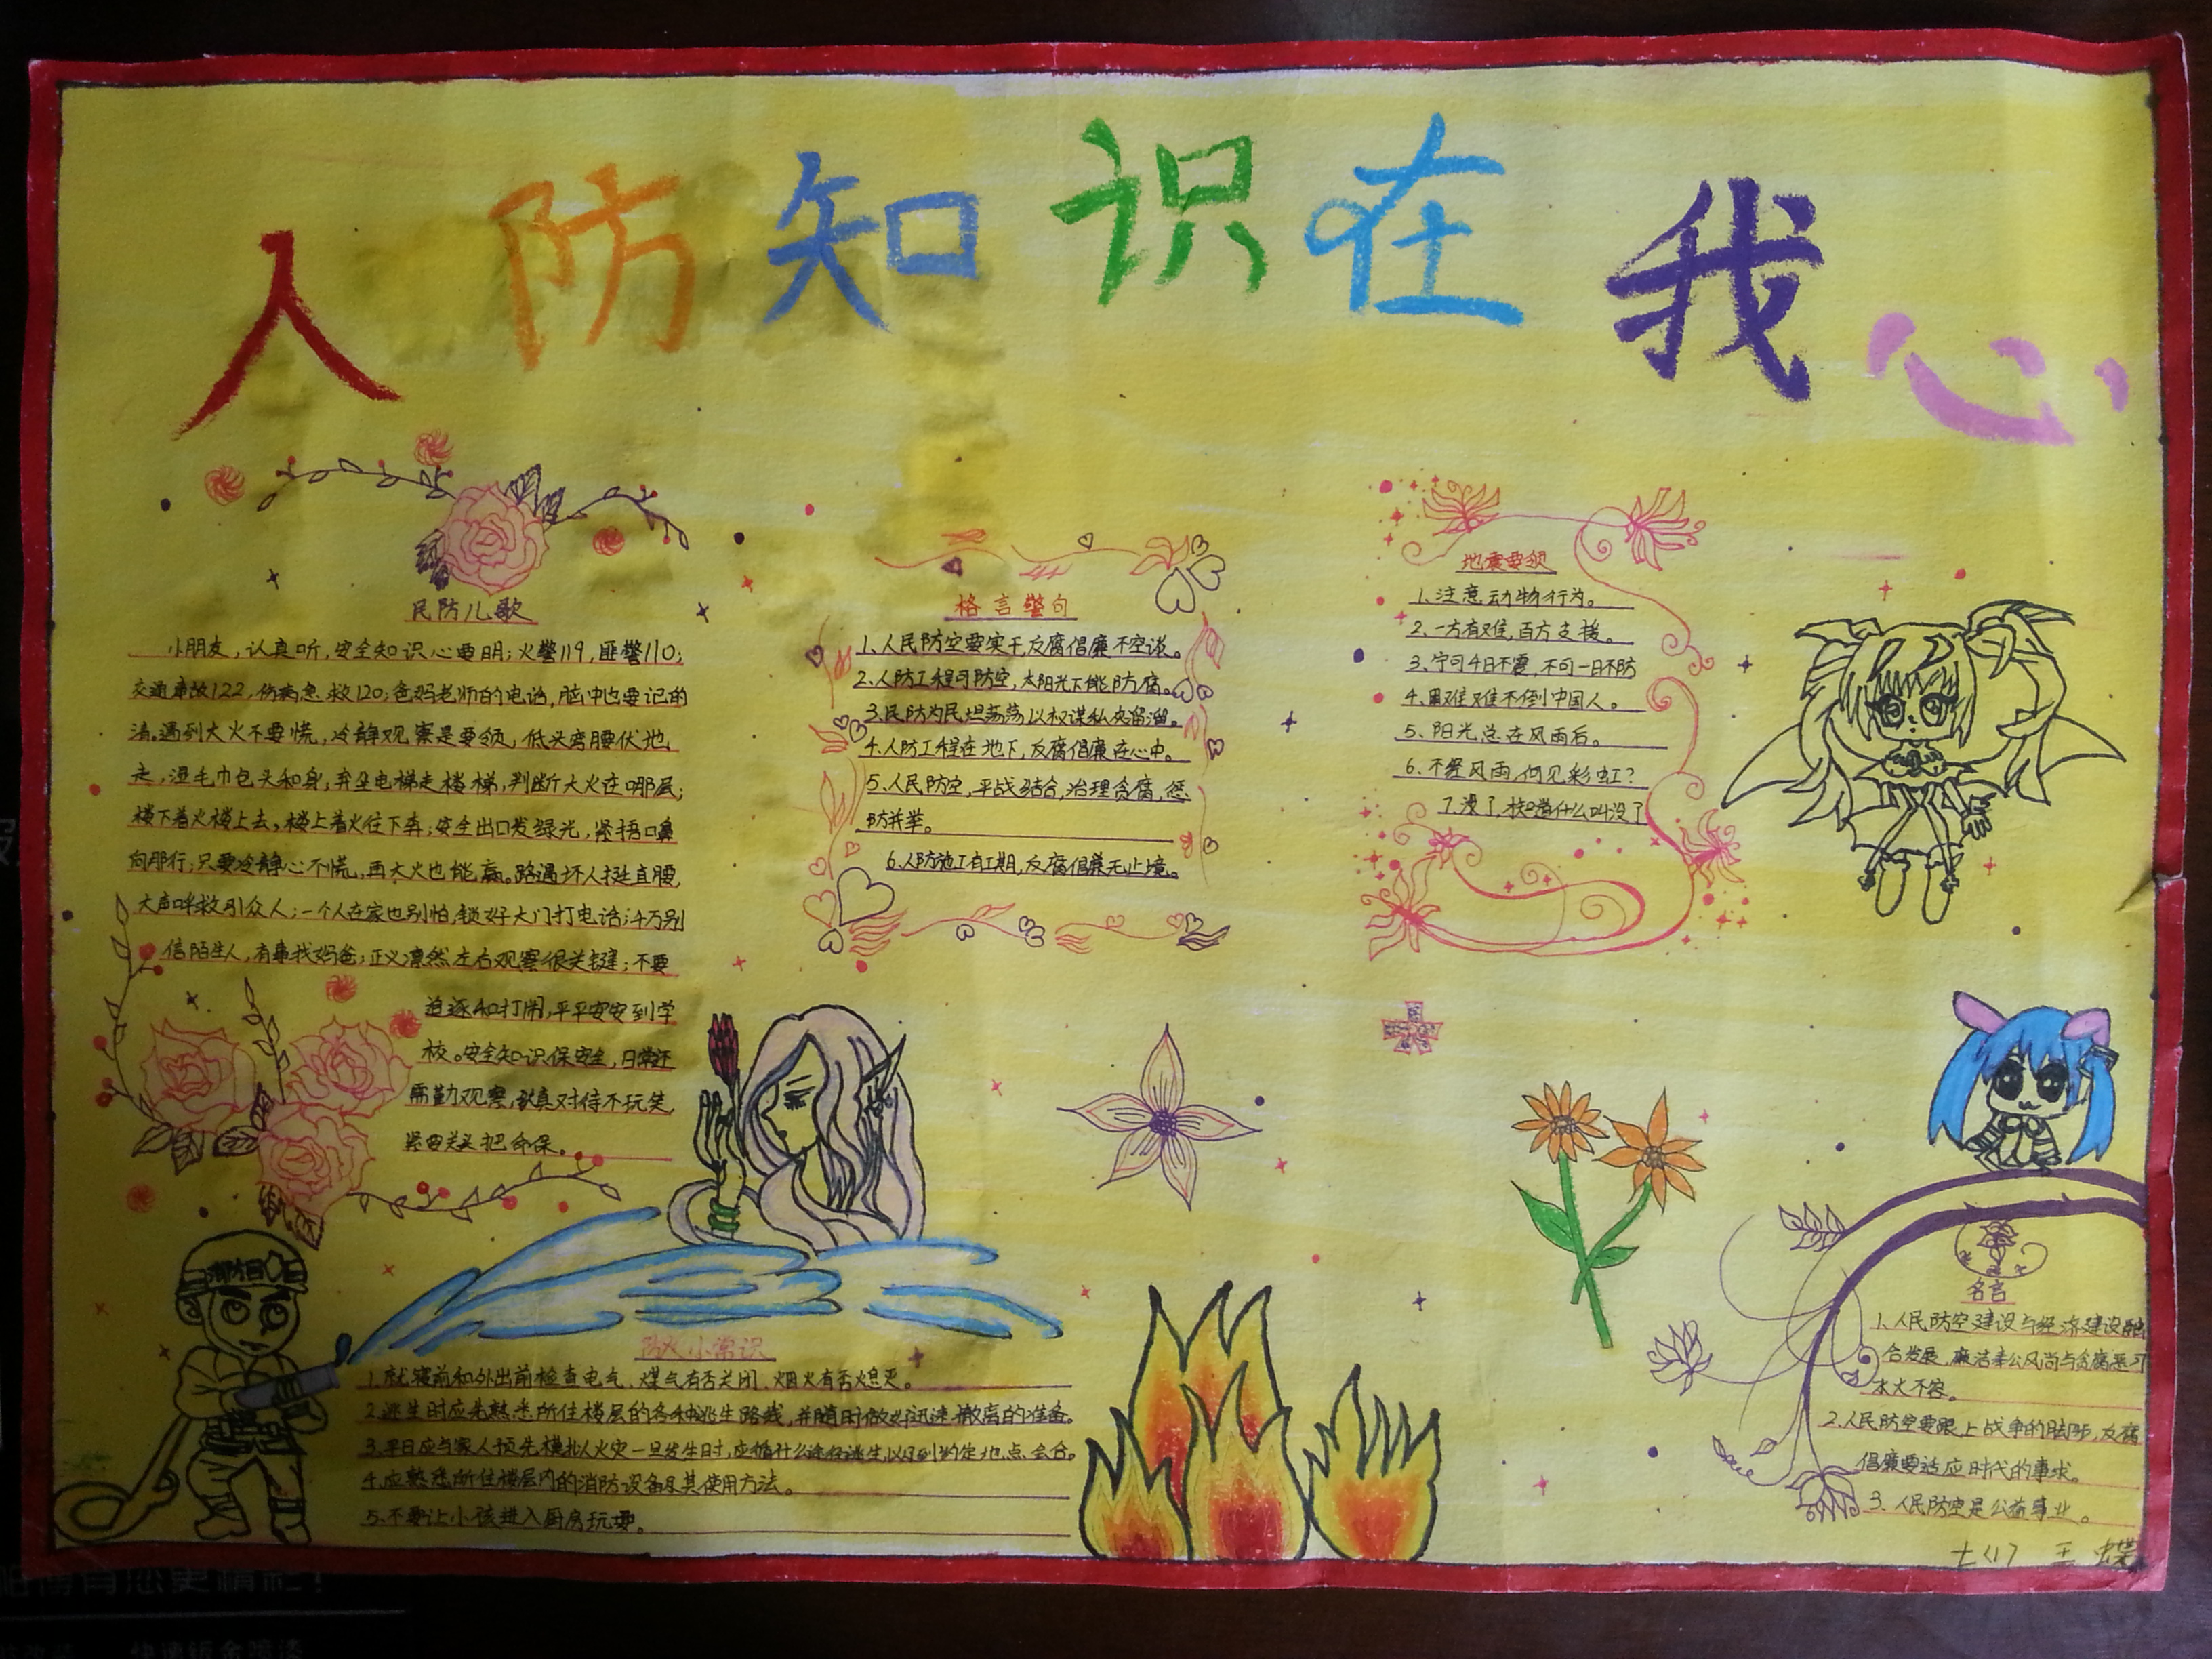 人防知识在我心
民防儿歌
小朋友，认真听，安全知识心要明；火警119，匪警110；
交通事故122，伤病急救120；爸妈老师的电话，脑中也要记的
清。遇到大火不要慌，冷静观察是要领，低头弯腰伏地
走，湿毛巾包头和身，弃坐电梯走楼梯，判断大火在哪层；
楼下着火楼上去，楼上着火往下奔；安全出口发绿光，紧捂口鼻
向那行；只要冷静心不慌，再大火也能赢。路遇坏人挺直腰，
大声呼救引众人；一个人在家也别怕，锁好大门打电话；千万别
信陌生人，有事找妈爸；正义凛然左右观察很关键；不要
追逐和打闹，平平安安到学
校。安全知识保安全，日常还
需勤观察，认真对待不玩笑，
紧要关头把命保。
格言警句
1、人民防空要实干，反腐倡廉不空谈。
2、人防工程可防空，太阳光下能防腐。
3、民防为民坦荡荡以权谋私灰溜溜。
4、人防工程在地下，反腐倡廉在心中。
5、人民防空，平战结合，治理贪腐，惩
防并举。
6、人防施工有工期，反腐倡廉无止境。
地震要领
1、注意动物行为。
2、一方有难，百方支援。
3、宁可4日不震，不可一日不防
4、困难难不倒中国人。
5、阳光总在风雨后。
6、不经风雨，何见彩虹？
7、没了，知道什么叫没了
消防员
防火小常识
1、就寝前和外出前检查电气、煤气有否关闭、烟火有否熄灭。
2、逃生时应先熟悉所住楼层的各种逃生路线，并随时做好迅速撤离的准备。
3、平日应与家人预先模拟火灾一旦发生时，应循什么途径逃生，以及到约定地点会合。
4、应熟悉所住楼层内的消防设备及其使用方法。
5、不要让小孩进入厨房玩耍。
名言
1、人民防空建设与经济建设融
合发展，廉洁奉公风尚与贪腐恶习
水火不容。
2、人民防空要跟上战争的脚步，反腐
倡廉要适应时代的事求。
3、人民防空是公益事业。
七（1） 王 蝶